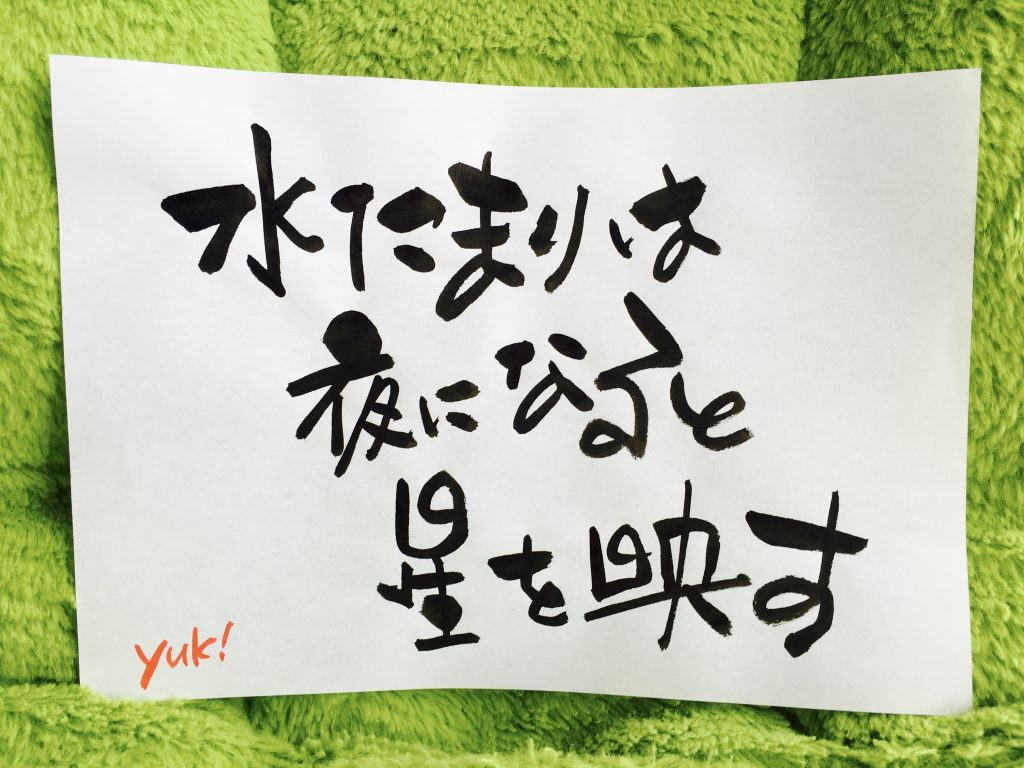 水たまりは
夜になると
星を映す
yuk!